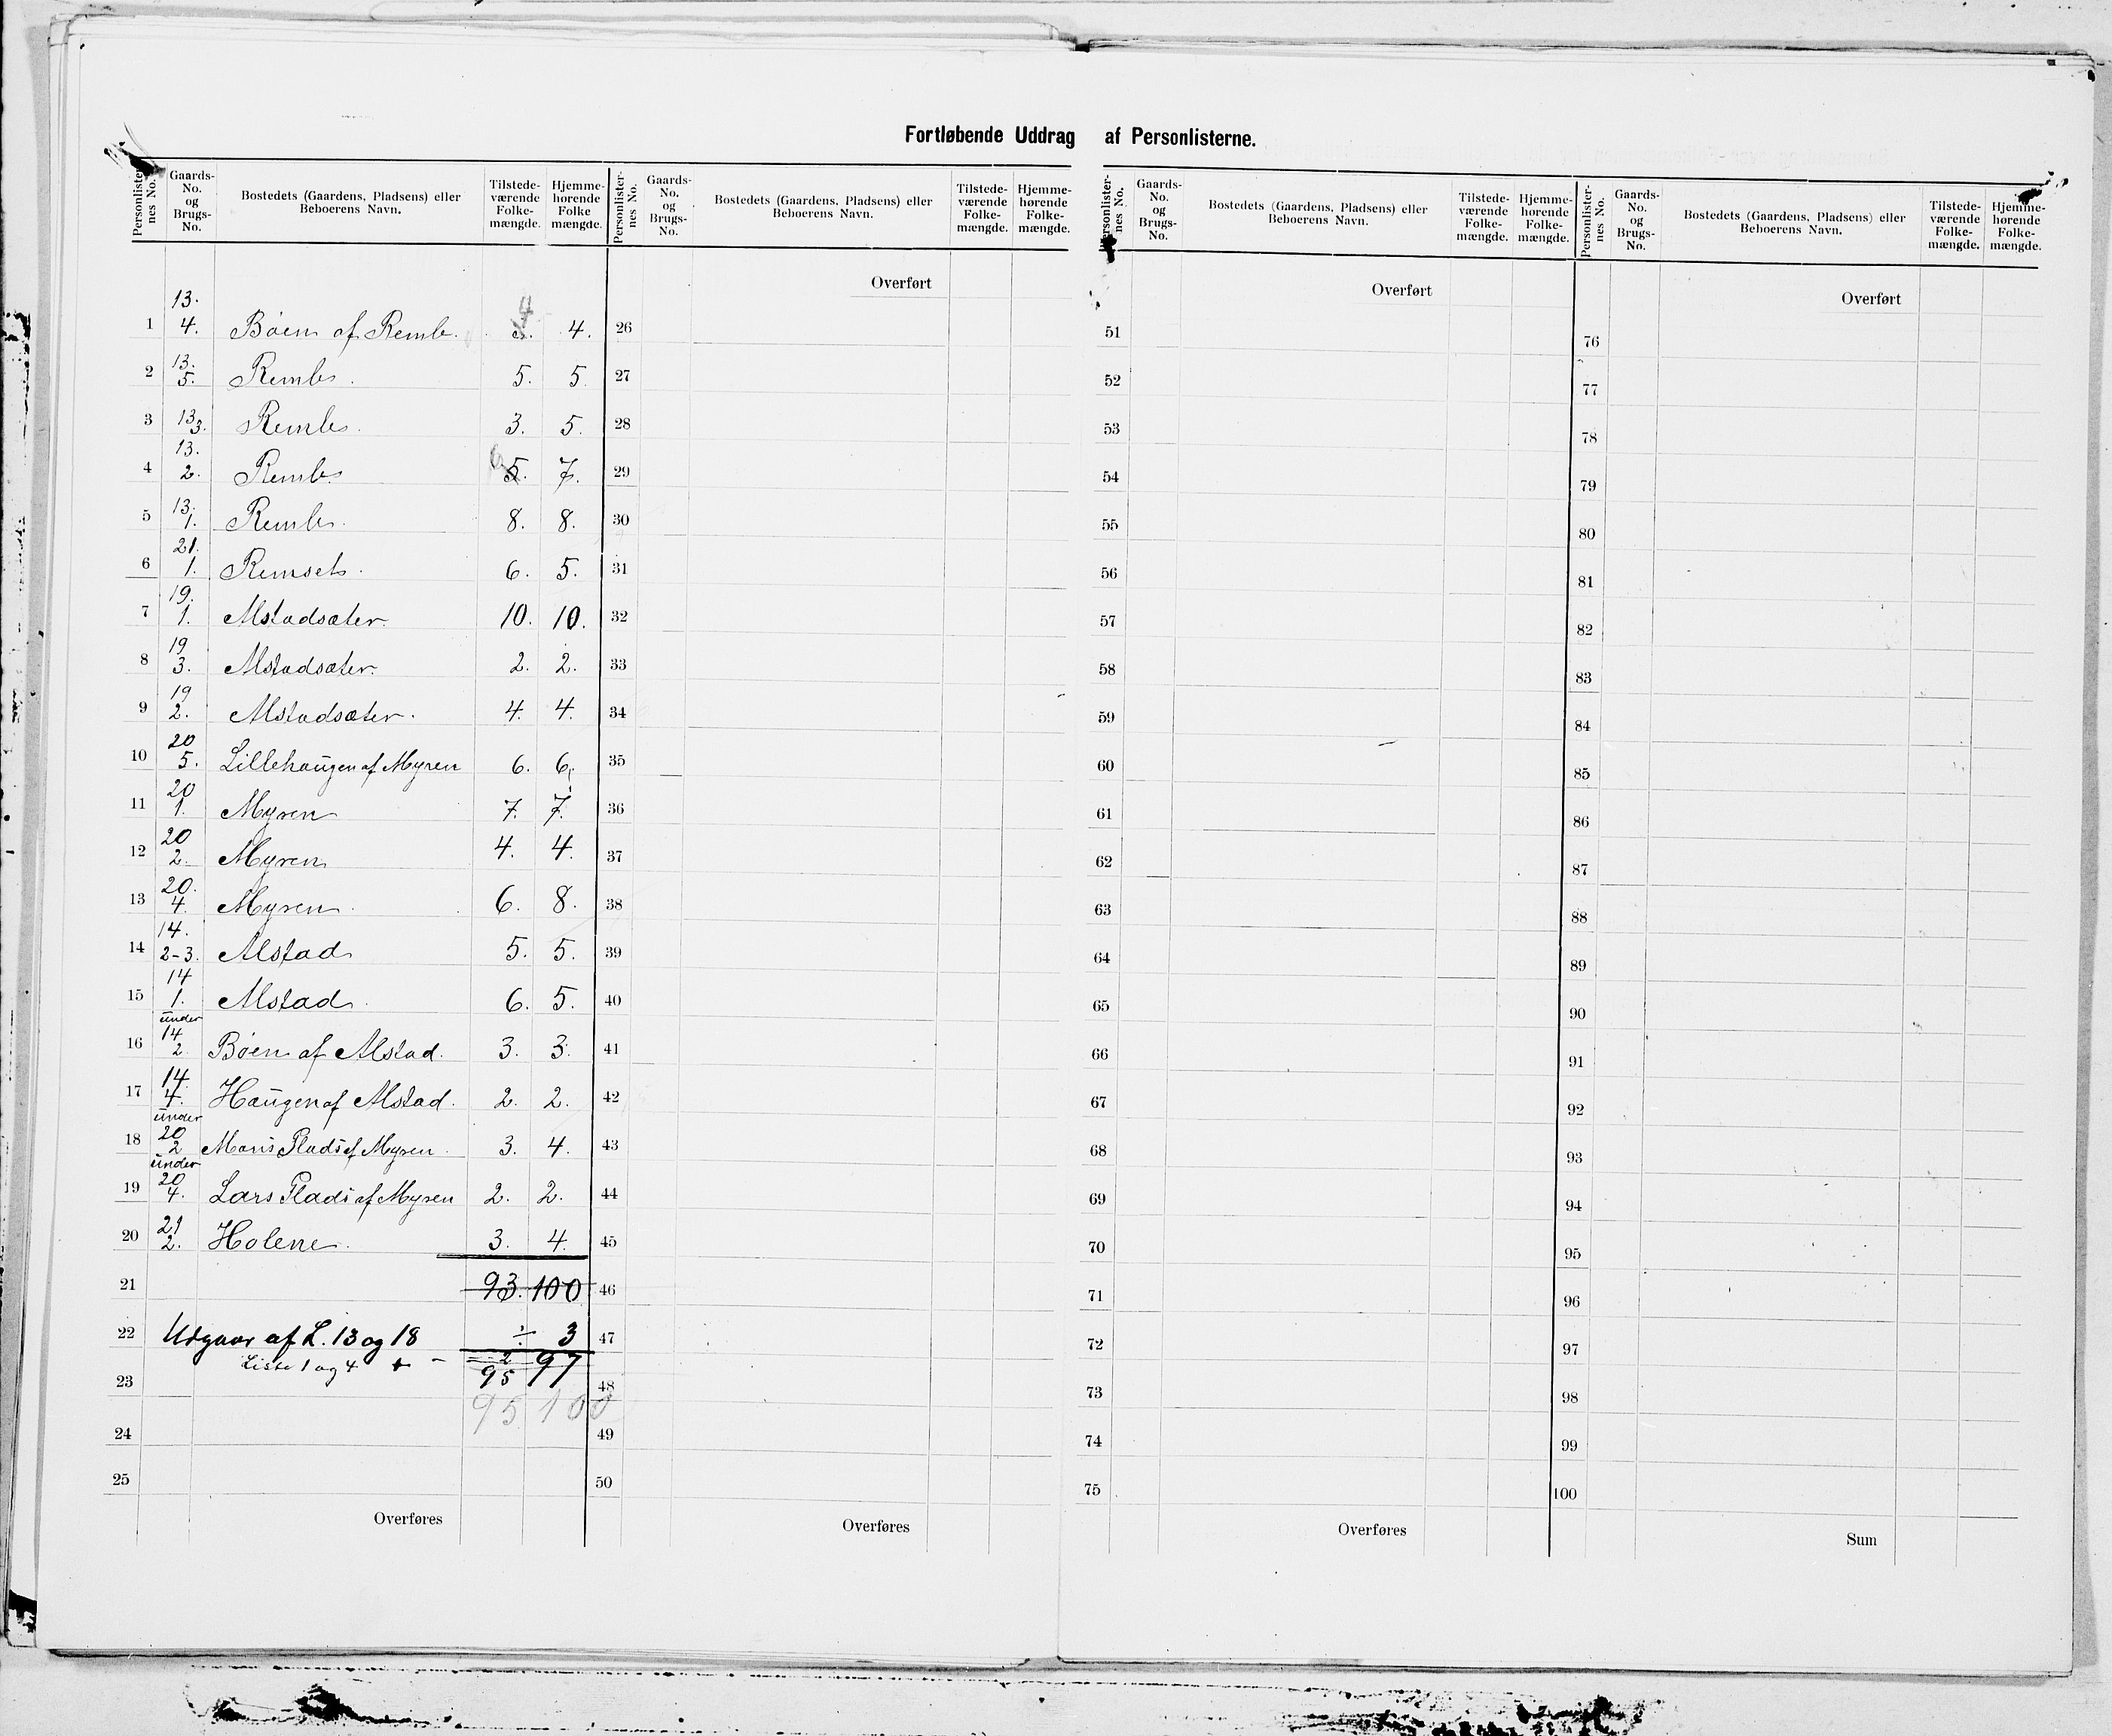 Fortløbende Uddrag af Personlisterne.
Personlister-nes No. Gaards-No. og Brugs-No. Bostedets (Gaardens, Pladsens) eller Beboerens Navn. Tilstede-værende Folke-mængde. Hjemme-hørende Folke mængde.
Personlister-nes No. Gaards-No. og Brugs-No. Bostedets (Gaardens, Pladsens) eller Beboerens Navn. Tilstede-værende Folke-mængde. Hjemme-hørende Folke-mængde.
Personlister-nes No. Gaards-No. og Brugs-No. Bostedets (Gaardens, Pladsens) eller Beboerens Navn. Tilstede-værende Folke-mængde. Hjemme-hørende Folke-mængde.
Personlister-nes No. Gaards-No. og Brugs-No. Bostedets (Gaardens, Pladsens) eller Beboerens Navn. Tilstede-værende Folke-mængde. Hjemme-hørende Folke-mængde.
1 13. 4. Böen af Remle. 4 3. 4.
2 13. 5. Remle. 5. 5.
3 13 3. Remle. 3. 5.
4 13. 2. Remle 5. 7.
5 13. 1. Remle. 8. 8.
6 21. 1. Remsets. 6. 5.
7 19. 1. Alstadsæter. 10. 10.
8 19 3. Alstadsæter. 2. 2.
9 19 2. Alstadsæter. 4. 4.
10 20 5. Lillehaugen af Myren 6. 6.
11 20 1. Myren 7. 7.
12 20 2. Myren 4. 4.
13 20. 4. Myren. 6. 8.
14 14. 2-3. Alstad 5. 5.
15 14 1. Alstad. 6. 5.
16 under 14 2 Böen af Alstad. 3. 3.
17 14. 4. Haugen af Alstad. 2. 2.
18 under 20 2 Maris Plads af Myren. 3. 4.
19 under 20 4. Lars Plads af Myren 2. 2.
20 21 2. Holene. 3. 4.
21 93. 100
22 Udgaar af L. 13 og 18 ÷ 3
Liste 1 og 4 + - 2 97
23 95
95 100
24
25
Overføres
Overført
26
27
28
29
30
31
32
33
34
35
36
37
38
39
40
41
42
43
44
45
46
47
48
49
50
Overføres
Overført
51
52
53
54
55
56
57
58
59
60
61
62
63
64
65
66
67
68
69
70
71
72
73
74
75
Overføres
Overført
76
77
78
79
80
81
82
83
84
85
86
87
88
89
90
91
92
93
94
95
96
97
98
99
100
Sum